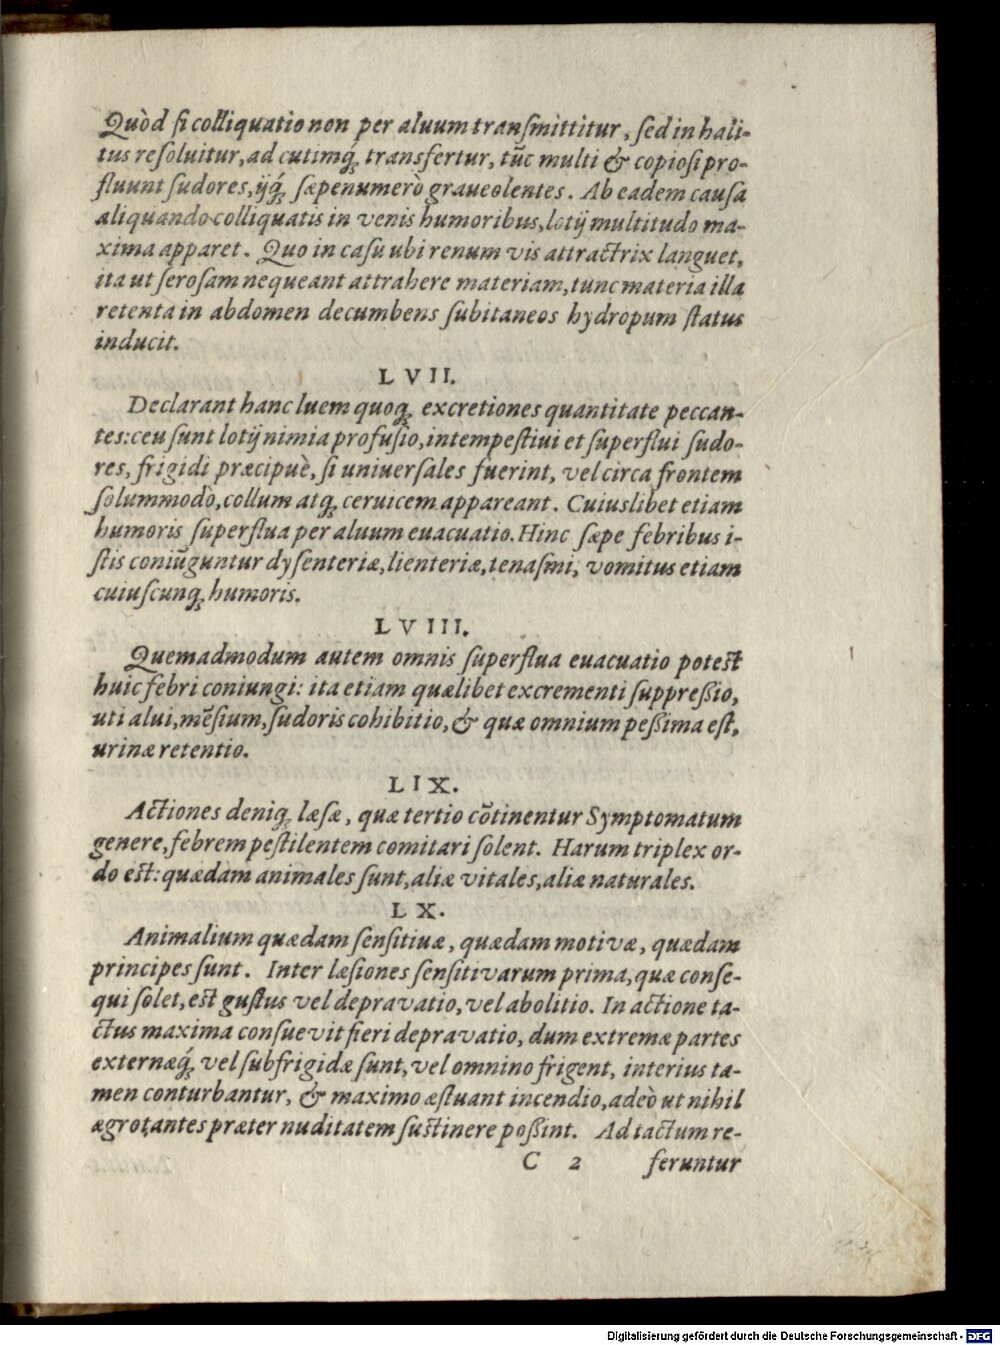 Quòd ſi colliquatio non per aluum tranſmittitur, ſed in hali-
tus reſoluitur, ad cutimq́ʒ transfertur, tũc multi & copioſi pro-
fluunt ſudores, ijq́ʒ ſæpenumerò graueolentes. Ab eadem cauſa
aliquando colliquatis in venis humoribus, lotij multitudo ma-
xima apparet. Quo in caſu ubi renum vis attractrix languet,
ita ut ſeroſam nequeant attrahere materiam, tunc materia illa
retenta in abdomen decumbens ſubitaneos hydropum ſtatus
inducit.
LVII.
Declarant hanc luem quoqʒ excretiones quantitate peccan-
tes: ceu ſunt lotij nimia profuſio, intempeſtiui et ſuperflui ſudo-
res, frigidi præcipuè, ſi uniuerſales fuerint, vel circa frontem
ſolummodò, collum atqʒ ceruicem appareant. Cuiuslibet etiam
humoris ſuperflua per aluum euacuatio. Hinc ſæpe febribus i-
ſtis coniũguntur dyſenteriæ, lienteriæ, tenaſmi, vomitus etiam
cuiuſcunqʒ humoris.
LVIII.
Quemadmodum autem omnis ſuperflua euacuatio poteſt
huic febri coniungi: ita etiam quælibet excrementi ſuppreßio,
uti alui, mẽſium, ſudoris cohibitio, & quæ omnium peßima eſt,
urinæ retentio.
LIX.
Actiones deniqʒ læſæ, quæ tertio cõtinentur Symptomatum
genere, febrem peſtilentem comitari ſolent. Harum triplex or-
do eſt: quædam animales ſunt, aliæ vitales, aliæ naturales.
LX.
Animalium quædam ſenſitiuæ, quædam motivæ, quædam
principes ſunt. Inter læſiones ſenſitivarum prima, quæ conſe-
qui ſolet, eſt guſtus vel depravatio, vel abolitio. In actione ta-
ctus maxima conſuevit fieri depravatio, dum extremæ partes
externæq́ʒ vel ſubfrigidæ ſunt, vel omnino frigent, interius ta-
men conturbantur, & maximo æſtuant incendio, adeò ut nihil
ægrotantes præter nuditatem ſuſtinere poßint. Ad tactum re-
C 2 feruntur
Digitalisierung gefördert durch die Deutsche Forschungsgemeinschaft - DFG